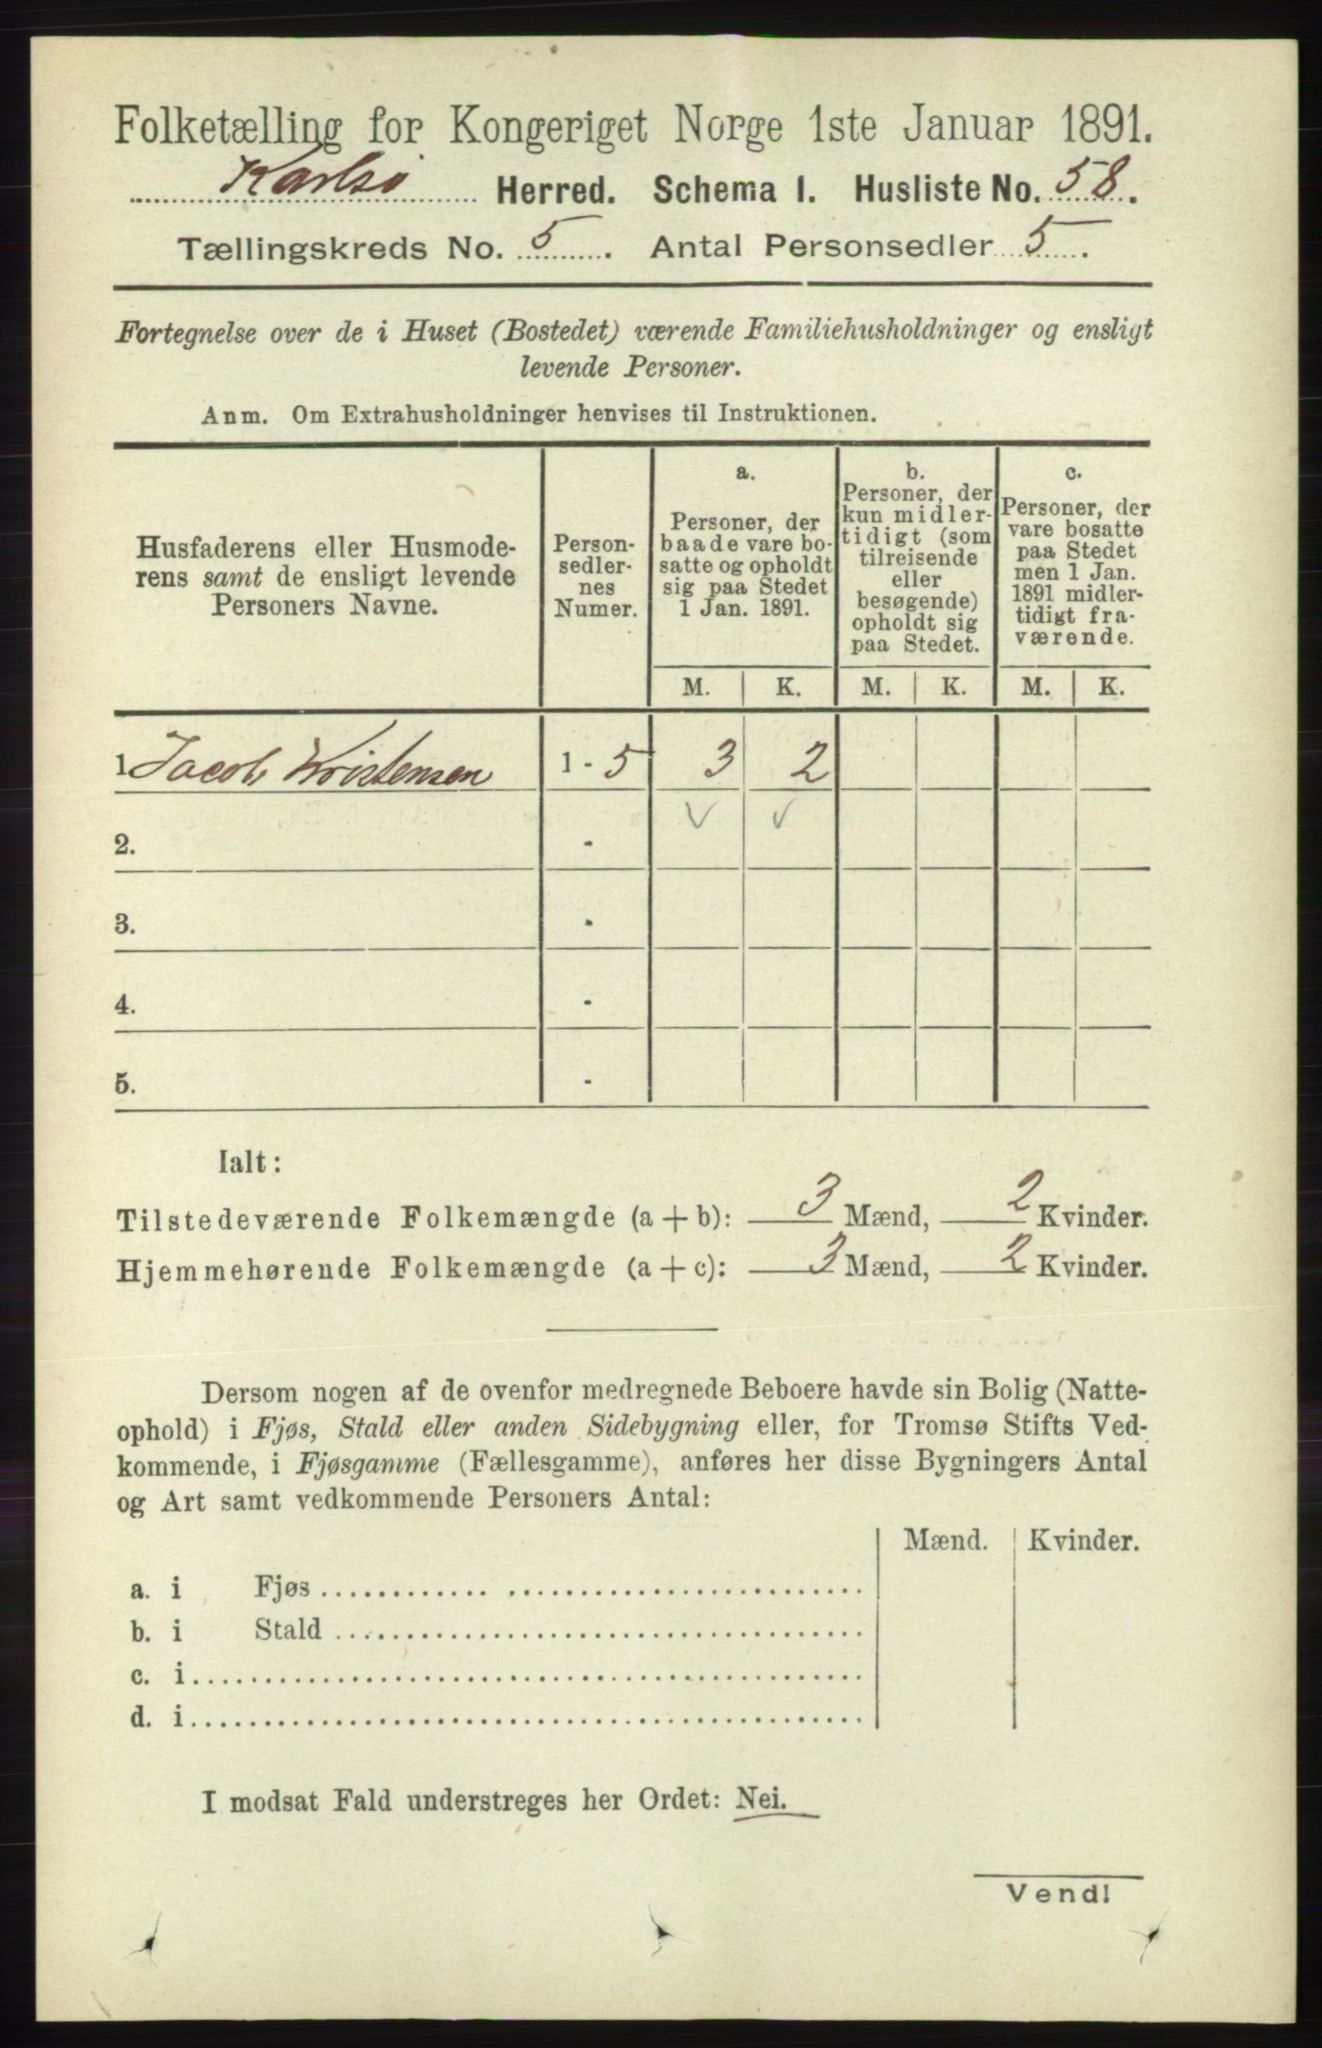 Folketælling for Kongeriget Norge 1ste Januar 1891.
Karlsø Herred. Schema I. Husliste No. 58.
Tællingskreds No. 5. Antal Personsedler 5.
Fortegnelse over de i Huset (Bostedet) værende Familiehusholdninger og ensligt
levende Personer.
Anm. Om Extrahusholdninger henvises til Instruktionen.
Husfaderens eller Husmode-
rens samt de ensligt levende
Personers Navne.
Person-
sedler-
nes
Numer.
a.
Personer, der
baade vare bo-
satte og opholdt
sig paa Stedet
1 Jan. 1891.
b.
Personer, der
kun midler-
tidigt (som
tilreisende
eller
besøgende)
opholdt sig
paa Stedet.
c.
Personer, der
vare bosatte
paa Stedet
men 1 Jan.
1891 midler-
tidigt fra-
værende.
M. K. M. K. M. K.
1. Jacob Kristensen 1 - 5 3 2
2. -
3. -
4. -
5. -
Ialt:
Tilstedeværende Folkemængde (a + b): 3 Mænd, 2 Kvinder.
Hjemmehørende Folkemængde (a + c): 3 Mænd, 2 Kvinder.
Dersom nogen af de ovenfor medregnede Beboere havde sin Bolig (Natte-
ophold) i Fjøs, Stald eller anden Sidebygning eller, for Tromsø Stifts Ved-
kommende, i Fjøsgamme (Fællesgamme), anføres her disse Bygningers Antal
og Art samt vedkommende Personers Antal:
Mænd. Kvinder.
a. i Fjøs
b. i Stald
c. i
d. i
I modsat Fald understreges her Ordet: Nei.
Vend!